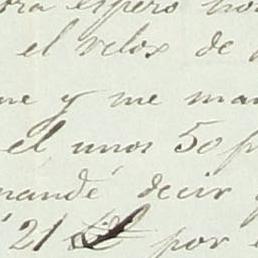 ora espero
el relox de
me y me man
el unos 50 p
mandé decir
21 por